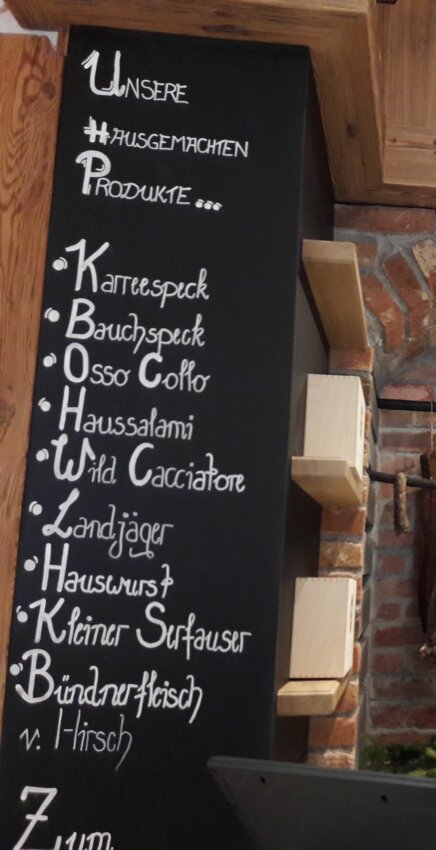 UNSERE
HAUSGEMACHTEN
PRODUKTE...
• Karreespeck
• Bauchspeck
• Osso Collo
• Haussalami
• Wild Cacciatore
• Landjäger
• Hauswurst
• Kleiner Serfauser
• Bündnerfleisch
v. Hirsch
Zum